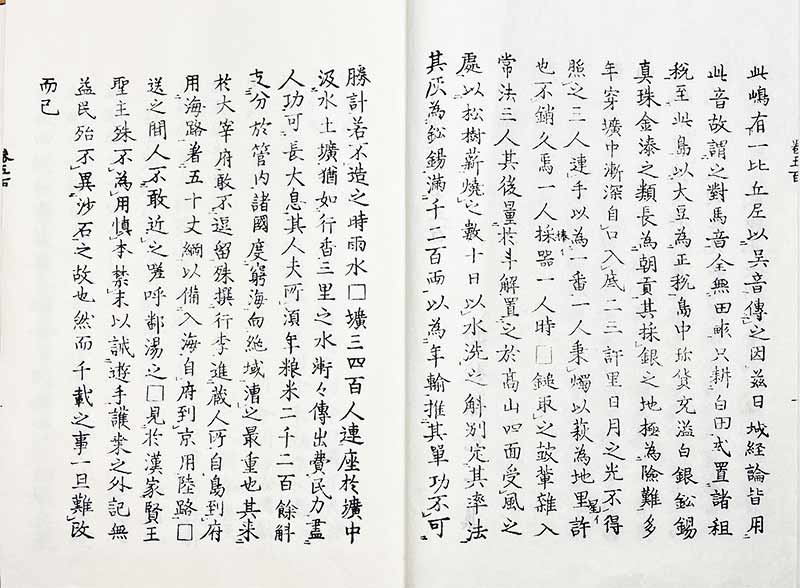 此嶋有一比丘尼以吳音傳之因茲日域経論皆用
此音故謂之對馬音全無田畝只耕白田式置諸租
税至此島以大豆為正税島中珎貨充溢白銀鈆錫
真珠金漆之類長為朝貢其採銀之地極為險難多
年穿壙中漸深自口入底二三許里日月之光不得
照之三人連手以為一番一人秉燭以萩為地里許
也不銷久焉一人採器一人時□鎚取之鼓葷雜入
常法三人其後量於斗解置之於高山四面受風之
處以松樹薪燒之數十日以水洗之斛別定其率法
其灰為鈆錫滿千二百両以為年輸推其單功不可
勝計若不造之時雨水□壙三四百人連座於壙中
汲水土壙猶如行香三里之水漸々傳出費民力盡
人功可長大息其人夫所湏年粮米二千二百餘斛
支分於管内諸國度窮海向絶域漕之最重也其来
於大宰府敢不逗留殊撰行李進蔵人所自島到府
用海路著五十丈綱以備入海自府到京用陸路□
送之間人不敢近之嗟呼鄰湯之□見於漢家賢王
聖主殊不為用慎本禁末以誡遊手護桒之外記無
益民殆不異沙石之故也然而千載之事一旦難改
而已